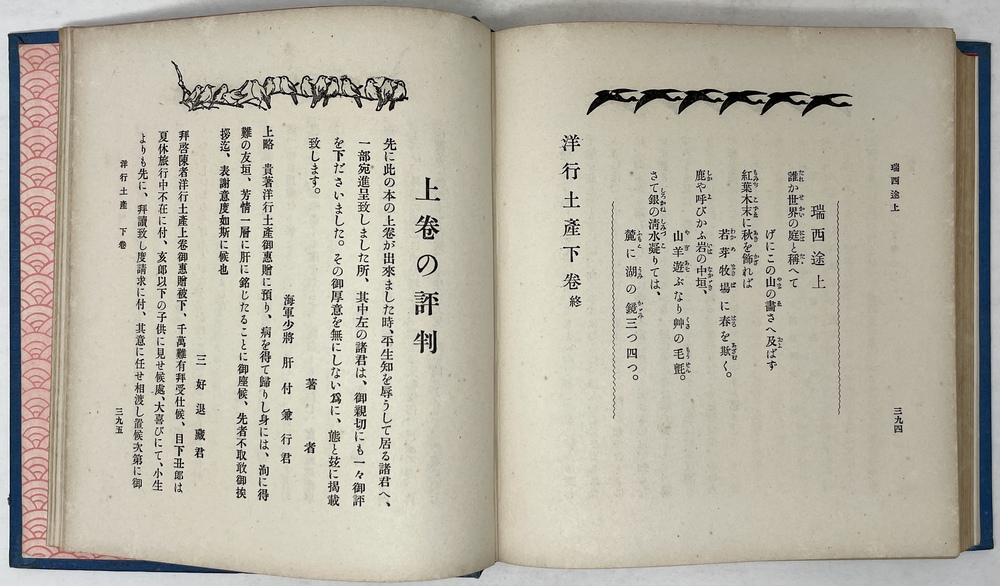 瑞西途上
三九四
瑞西途上
誰か世界の庭と稱へて
げにこの山の畵さへ及ばず
紅葉木末に秋を飾れば
若芽牧場に春を欺く。
鹿や呼びかふ岩の中垣、
山羊遊ぶなり艸の毛氈。
さて銀の淸水凝りては、
麓に湖の鏡三つ四つ。
洋行土產下卷 終
上卷の評判
先に此の本の上卷が出來ました時、平生知を辱うして居る諸君へ、
一部宛進呈致しました所、其中左の諸君は、御親切にも一々御評
を下ださいました。その御厚意を無にしない爲に、態と玆に揭載
致します。
著者
海軍少將 肝付兼行君
上略 貴著洋行土產御惠贈に預り、病を得て歸りし身には、洵に得
難の友垣、芳情一層に肝に銘じたることに御座候、先者不取敢御挨
拶迄、表謝意度如斯に候也
三好退藏君
拜啓陳者洋行土產上卷御惠贈被下、千萬難有拜受仕候、目下丑郎は
夏休旅行中不在に付、亥郎以下の子供に見せ候處、大喜びにて、小生
よりも先に、拜讀致し度請求に付、其意に任せ相渡し置候次第に御
洋行土產 下卷
三九五